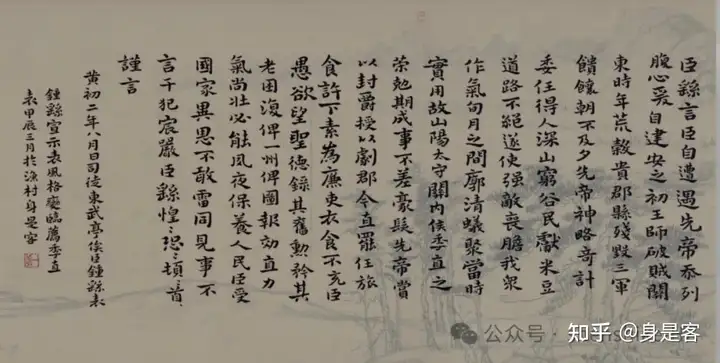 臣繇言臣自遭遇先帝忝列
腹心爰自建安之初王師破賊關
東時年荒穀貴郡縣殘毀三軍
饋饟朝不及夕先帝神略奇計
委任得人深山窮谷民獻米豆
道路不絕遂使強敵喪膽我眾
作氣旬月之間廓清蟻聚當時
實用故山陽太守關內侯季直之
策勉期成事不差豪髮先帝賞
以封爵授以劇郡今直罷任旅
食許下素為廉吏衣食不充臣
愚欲望聖德錄其舊勳矜其
老困復俾一州俾圖報效直力
氣尚壯必能夙夜保養人民臣受
國家異恩不敢雷同見事不
言干犯宸嚴臣繇惶〻恐〻頓〻首〻
謹言
黃初二年八月日司徒東武亭侯臣鍾繇表
鍾繇宣示表風格臨薦季直
表甲辰三月於漁村身是客
公众号
知乎 @身是客